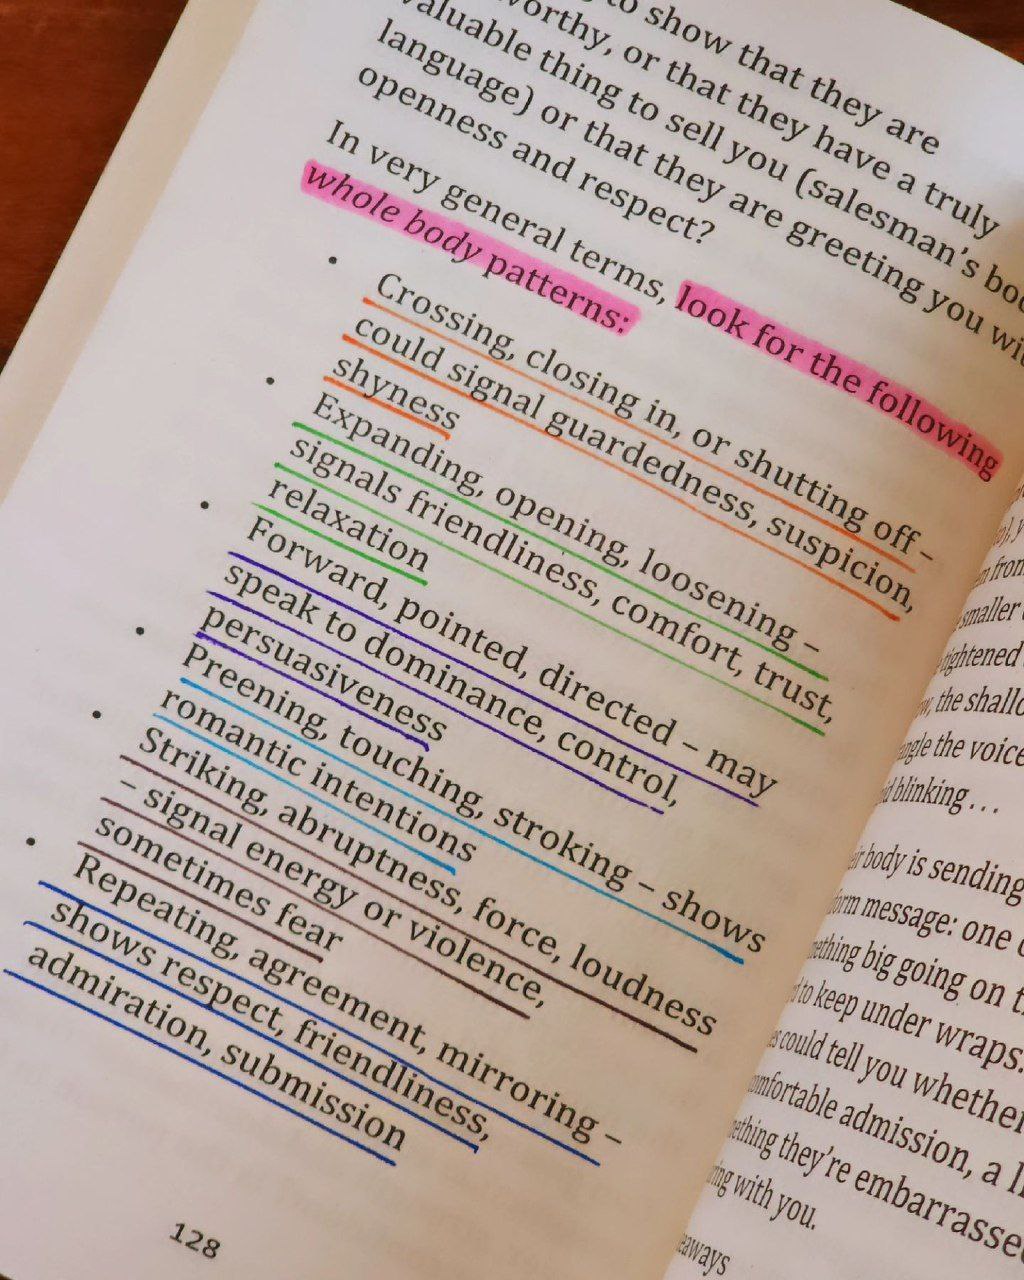 to show that they are
worthy, or that they have a truly
valuable thing to sell you (salesman's
language) or that they are greeting you
openness and respect?
In very general terms, look for the following
whole body patterns:
• Crossing, closing in, or shutting off –
could signal guardedness, suspicion,
shyness
• Expanding, opening, loosening –
signals friendliness, comfort, trust,
relaxation
• Forward, pointed, directed – may
speak to dominance, control,
persuasiveness
• Preening, touching, stroking – shows
romantic intentions
• Striking, abruptness, force, loudness
– signal energy or violence,
sometimes fear
• Repeating, agreement, mirroring –
shows respect, friendliness,
admiration, submission
128
from
smaller
tightened
the shallo
the voice
blinking...
body is sending
message: one
big going on
to keep under wraps.
could tell you whether
admission, a
they're embarrassed
with you.